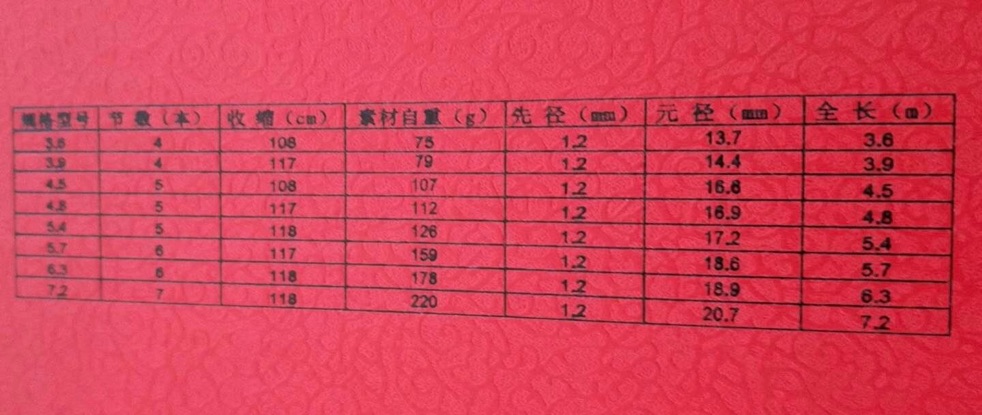 规格型号 节 数（本） 收 缩（cm） 素材自重（g） 先 径（mm） 元 径（mm） 全 长（m）
3.6 4 108 75 1.2 13.7 3.6
3.9 4 117 79 1.2 14.4 3.9
4.5 5 108 107 1.2 16.6 4.5
4.8 5 117 112 1.2 16.9 4.8
5.4 5 118 126 1.2 17.2 5.4
5.7 6 117 159 1.2 18.6 5.7
6.3 6 118 178 1.2 18.9 6.3
7.2 7 118 220 1.2 20.7 7.2